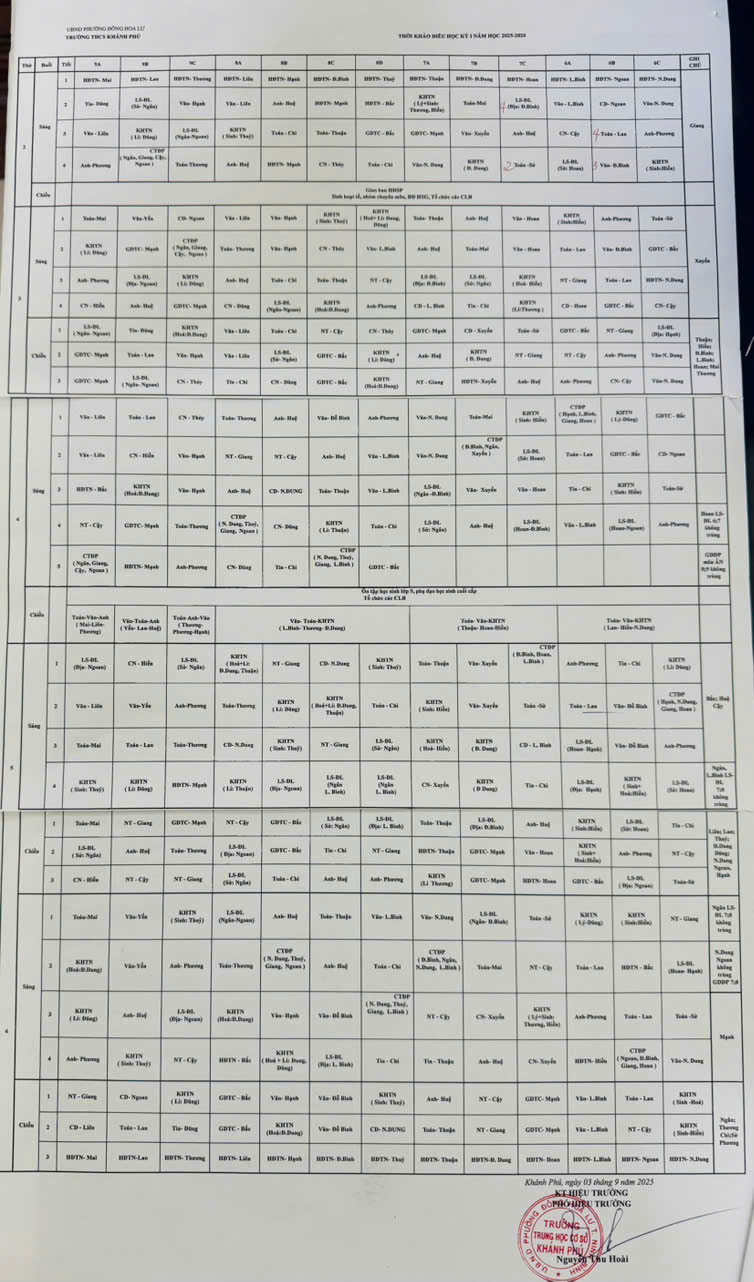 UBND PHƯỜNG ĐÔNG HOA LƯ
TRƯỜNG THCS KHÁNH PHÚ
THỜI KHÁO BIỂU HỌC KỲ I NĂM HỌC 2025-2026
Thứ Buổi Tiết 9A 9B 9C 8A 8B 8C 8D 7A 7B 7C 6A 6B 6C GHI CHÚ
2 Sáng 1 HĐTN- Mai HĐTN- Lan HĐTN- Thương HĐTN- Liên HĐTN- Hạnh HĐTN- Đ.Bình HĐTN- Thuý HĐTN- Thuận HĐTN- Đ.Dung HĐTN- Hoan HĐTN- L.Bình HĐTN- Ngoan HĐTN- N.Dung Giang
2 Tin- Dũng LS-ĐL (Sử- Ngân) Văn- Hạnh Văn - Liên Anh- Huệ HĐTN- Mạnh HĐTN - Bắc KHTN ( Lý+Sinh: Thương, Hiền) Toán-Mai LS-ĐL (Địa: Đ.Bình) Văn - L.Bình CD- Ngoan Văn-N. Dung
3 Văn - Liên KHTN ( Li: Dũng) LS-ĐL (Ngân-Ngoan) KHTN ( Sinh: Thuý) Toán - Chi Toán- Thuận GDTC- Bắc GDTC- Mạnh Văn- Xuyến Anh- Huệ CN- Cậy 4 Toán - Lan Anh-Phương
4 Anh-Phương CTĐP ( Ngân, Giang, Cậy, Ngoan ) Toán-Thương Anh- Huệ HĐTN- Mạnh CN - Thùy Toán - Chi Văn-N. Dung KHTN ( Đ. Dung) 2 Toán-Sử LS-ĐL (Sử: Hoan) 3 Văn- Đ.Bình KHTN ( Sinh:Hiền)
Chiều Giao ban HĐSP
Sinh hoạt tổ, nhóm chuyên môn, BD HSG, Tổ chức các CLB
3 Sáng 1 Toán-Mai Văn-Yến CD- Ngoan Văn - Liên Văn- Hạnh KHTN ( Sinh: Thuý) KHTN ( Hoá+ Li: Dung, Dũng) Toán- Thuận Anh- Huệ Văn - Hoan KHTN (Sinh:Hiền) Anh-Phương Toán -Sử Xuyến
2 KHTN ( Li: Dũng) GDTC- Mạnh CTĐP ( Ngân, Giang, Cậy, Ngoan ) Toán- Thương Văn- Hạnh CN - Thùy Văn- L.Bình Anh- Huệ Toán-Mai Văn - Hoan Toán - Lan Văn- Đ.Bình GDTC - Bắc
3 Anh- Phương LS-ĐL (Địa- Ngoan) KHTN ( Li: Dũng) Anh- Huệ Toán - Chi Toán- Thuận NT - Cậy LS-ĐL (Địa: Đ.Bình) LS-ĐL (Sử: Ngân) KHTN ( Hoá- Hiền) NT - Giang Toán - Lan HĐTN- N.Dung
4 CN - Hiền Anh- Huệ GDTC- Mạnh CN - Dũng LS-ĐL (Ngân-Ngoan) KHTN (Hoá:Đ.Dung) Anh-Phương CD - L. Bình Tin - Chi KHTN (Li:Thương) CD - Hoan GDTC - Bắc CN- Cậy
Chiều 1 LS-ĐL ( Ngân- Ngoan) Tin- Dũng KHTN (Hoá:Đ.Dung) Văn - Liên Toán - Chi NT - Cậy CN - Thùy GDTC- Mạnh CD - Xuyến Toán-Sử GDTC - Bắc NT - Giang LS-ĐL (Địa: Hạnh) Thuận; Hiền; Đ.Bình; L.Bình; Hoan; Mai Thương
2 GDTC- Mạnh Toán - Lan Văn- Hạnh Văn - Liên LS-ĐL (Sử- Ngân) GDTC - Bắc KHTN ( Li: Dũng) Anh- Huệ KHTN ( Đ. Dung) NT - Giang NT - Cậy Anh- Phương Văn-N. Dung
3 GDTC- Mạnh LS-ĐL ( Ngân-Ngoan) CN - Thùy Tin - Chi CN - Dũng GDTC - Bắc KHTN (Hoá:Đ.Dung) NT - Giang HĐTN- Xuyến Anh- Huệ Anh-Phương CN- Cậy Văn-N. Dung
4 Sáng 1 Văn - Liên Toán - Lan CN - Thùy Toán- Thương Anh- Huệ Văn- Đỗ Bình Anh-Phương Văn-N. Dung Toán-Mai KHTN ( Sinh: Hiền) CTĐP ( Hạnh, L.Bình, Giang, Hoan ) KHTN ( Lý-Dũng) GDTC - Bắc
2 Văn - Liên CN - Hiền Văn- Hạnh NT - Giang NT - Cậy Anh- Huệ Văn - L.Bình Văn-N. Dung CTĐP ( Đ.Bình, Ngân, Xuyến ) LS-ĐL (Sử: Hoan) Toán - Lan GDTC - Bắc CD- Ngoan
3 HĐTN - Bắc KHTN (Hoá:Đ.Dung) Văn- Hạnh Anh- Huệ CD- N.DUNG Toán- Thuận Văn - L.Bình LS-ĐL (Ngân -Đ.Bình) Văn- Xuyến Văn - Hoan Tin - Chi KHTN ( Sinh: Hiền) Toán-Sử
4 NT - Cậy GDTC- Mạnh Toán-Thương CTĐP ( N. Dung, Thuý, Giang, Ngoan ) CN- Dũng KHTN ( Li: Thuận) Toán - Chi LS-ĐL ( Sử: Ngân) Anh- Huệ LS-ĐL (Hoan-Đ.Bình) Văn - L.Bình LS-ĐL (Hoan-Ngoan) Anh-Phương Hoan LS-ĐL 6;7 không trùng
5 CTĐP ( Ngân, Giang, Cậy, Ngoan ) HĐTN- Mạnh Anh-Phương CN- Dũng Tin - Chi CTĐP ( N. Dung, Thuý, Giang, L.Bình ) GDTC - Bắc GDĐP môn ÂN 8;9 không trùng
Chiều Ôn tập học sinh lớp 9, phụ đạo học sinh cuối cấp
Tổ chức các CLB
Toán-Văn-Anh ( Mai-Liên-Phương) Văn-Toán-Anh ( Yến- Lan-Huệ) Toán-Anh-Văn ( Thương-Phương-Hạnh) Văn- Toán-KHTN ( L.Bình- Thương- Đ.Dung) Toán- Văn-KHTN ( Thuận- Hoan-Hiền) Toán- Văn-KHTN ( Lan- Hiền-N.Dung)
5 Sáng 1 LS-ĐL (Địa- Ngoan) CN - Hiền LS-ĐL ( Sử- Ngân) KHTN ( Hoá+Li: Đ.Dung, Thuận) NT - Giang CD- N.Dung KHTN ( Sinh: Thuý) Toán- Thuận Văn- Xuyến CTĐP ( Đ.Bình, Hoan, L.Bình ) Anh-Phương Tin - Chi KHTN ( Li: Dũng) Bắc; Huệ Cậy
2 Văn - Liên Văn-Yến Anh-Phương Toán-Thương KHTN ( Li: Dũng) KHTN ( Hoá+Li: Đ.Dung, Thuận) Toán - Chi KHTN ( Sinh: Hiền) Văn- Xuyến Toán-Sử Toán - Lan Văn- Đỗ Bình CTĐP ( Hạnh, N.Dung, Giang, Hoan )
3 Toán-Mai Toán - Lan Toán-Thương CD- N.Dung KHTN ( Sinh: Thuý) NT - Giang LS-ĐL (Sử- Ngân) KHTN ( Hoá- Hiền) KHTN ( Đ. Dung) CD - L. Bình LS-ĐL (Hoan- Hạnh) Văn- Đỗ Bình Anh-Phương
4 KHTN ( Sinh: Thuý) KHTN ( Li: Dũng) HĐTN- Mạnh KHTN ( Li: Thuận) LS-ĐL (Địa- Ngoan) LS-ĐL (Ngân L. Bình) LS-ĐL (Ngân L. Bình) CN- Xuyến KHTN ( Đ Dung) Tin - Chi LS-ĐL (Địa: Hạnh) KHTN ( Sinh+ Hoá:Hiền) LS-ĐL (Sử: Hoan) Ngân, L.Bình LS-ĐL 7;8 không trùng
Chiều 1 Toán-Mai NT - Giang GDTC- Mạnh NT - Cậy GDTC - Bắc LS-ĐL ( Sử: Ngân) LS-ĐL (Địa: L. Bình) Toán- Thuận LS-ĐL (Địa: Đ.Bình) Anh- Huệ KHTN (Sinh:Hiền) LS-ĐL (Sử: Hoan) Tin - Chi Liên; Lan; Thuý; Đ.Dung Dũng; N.Dung Ngoan, Hạnh
2 LS-ĐL ( Sử: Ngân) Anh- Huệ Toán- Thương LS-ĐL (Địa: Ngoan) GDTC - Bắc Tin - Chi NT - Giang HĐTN- Thuận GDTC- Mạnh Văn - Hoan KHTN ( Sinh+ Hoá:Hiền) Anh- Phương NT - Cậy
3 CN - Hiền NT - Cậy NT - Giang LS-ĐL (Sử: Ngân) Toán - Chi Anh- Huệ Anh - Phương KHTN (Li Thương) GDTC- Mạnh HĐTN- Hoan GDTC - Bắc LS-ĐL ( Địa: Ngoan) Toán-Sử
6 Sáng 1 Toán-Mai Văn-Yến KHTN ( Sinh: Thuý) LS-ĐL (Ngân-Ngoan) Anh- Huệ Toán- Thuận Văn- L.Bình Văn- N.Dung LS-ĐL (Ngân- Đ.Bình) Toán -Sử KHTN ( Lý-Dũng) KHTN ( Sinh:Hiền) NT - Giang Ngân LS-ĐL 7;8 không trùng
2 KHTN (Hoá:Đ.Dung) Văn-Yến Anh- Phương Toán-Thương CTĐP ( N. Dung, Thuý, Giang, Ngoan ) Anh- Huệ Toán - Chi CTĐP ( Đ.Bình, Ngân, N.Dung, L.Bình ) Toán-Mai NT - Cậy Toán - Lan HĐTN - Bắc LS-ĐL (Hoan- Hạnh) N.Dung Ngoan không trùng GDĐP 7;8
3 KHTN ( Li: Dũng) Anh- Huệ LS-ĐL (Địa- Ngoan) KHTN (Hoá:Đ.Dung) Văn- Hạnh Văn- Đỗ Bình CTĐP ( N. Dung, Thuý, Giang, L.Bình ) NT - Cậy CN- Xuyến KHTN ( Lý+Sinh: Thương, Hiền) Anh-Phương Toán - Lan Toán -Sử Mạnh
4 Anh- Phương KHTN ( Sinh: Thuý) NT - Cậy HĐTN - Bắc KHTN ( Hoá + Li: Dung, Dũng) LS-ĐL (Địa: L. Bình) Tin - Chi Tin - Thuận Anh- Huệ CN- Xuyến HĐTN- Hiền CTĐP ( Ngoan, Đ.Bình, Giang, Hoan ) Văn-N. Dung
Chiều 1 NT - Giang CD- Ngoan KHTN ( Li: Dũng) GDTC - Bắc Văn- Hạnh Văn- Đỗ Bình KHTN ( Sinh: Thuý) Anh- Huệ NT - Cậy GDTC- Mạnh Văn - L.Bình Toán - Lan KHTN ( Sinh -Hoá) Ngân; Thương Chi;Sử Phương
2 CD - Liên Toán - Lan Tin- Dũng GDTC - Bắc KHTN (Hoá:Đ.Dung) Văn- Đỗ Bình CD- N.DUNG Toán- Thuận NT - Giang GDTC- Mạnh Văn - L.Bình NT - Cậy KHTN ( Sinh-Hiền)
3 HĐTN- Mai HĐTN-Lan HĐTN- Thương HĐTN- Liên HĐTN- Hạnh HĐTN- Đ.Bình HĐTN- Thuý HĐTN- Thuận HĐTN-Đ. Dung HĐTN- Hoan HĐTN- L.Bình HĐTN- Ngoan HĐTN- N.Dung
Khánh Phú, ngày 03 tháng 9 năm 2025
KT HIỆU TRƯỞNG
PHÓ HIỆU TRƯỞNG
UBND PHƯỜNG ĐÔNG HOA LƯ T. NINH BÌNH
TRƯỜNG
TRUNG HỌC CƠ SỞ
KHÁNH PHÚ
Nguyễn Thu Hoài